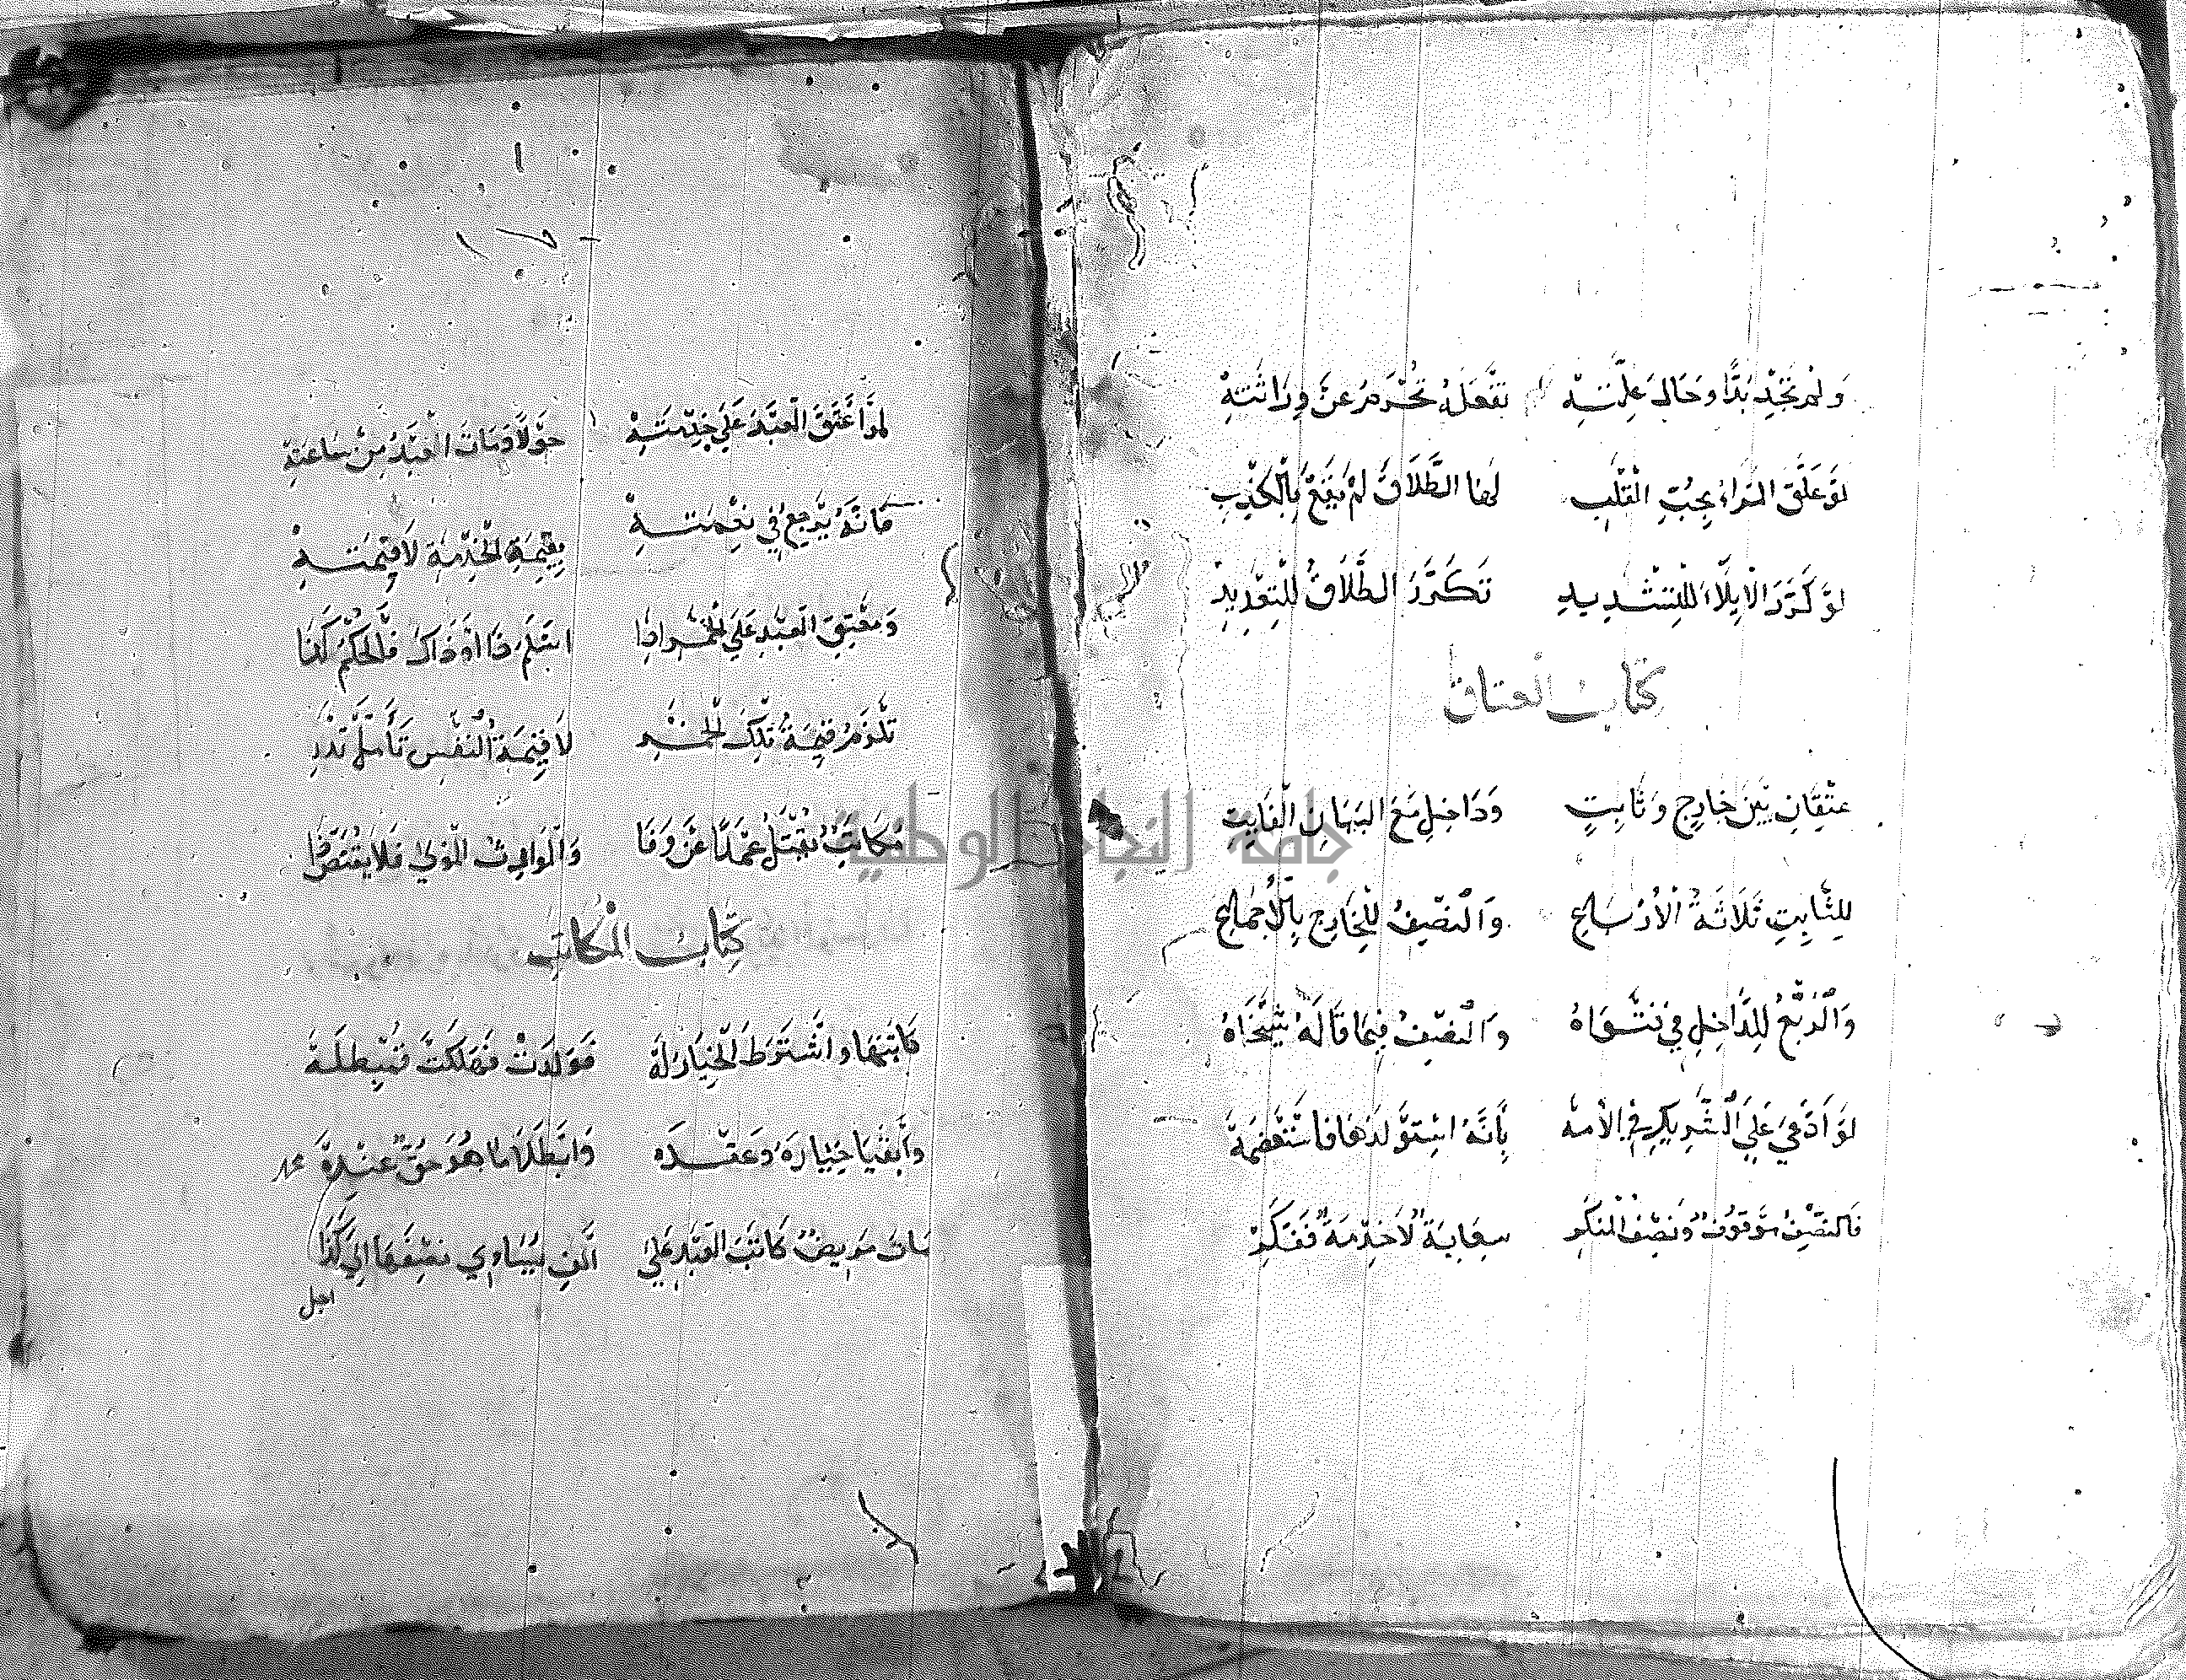 وَلَمْ تَجِدْ بُدًّا وَحَالَ عِلَّتِهْ تَفْعَلُهُ تُحْرَمُ عَنْ وِرَاثَتِهْ
لَوْ عَلَّقَ المرْاةَ بِحُبِّ الْقَلْبِ لَهَا الطَّلَاقُ لَمْ يَقَعْ بِالْكَذِبِ
لَوْ كَرَّرَ الْايلَاءَ لِلتَّشْدِيدِ تَكَرَّرَ الطَّلَاقُ لِلتَّعْدِيدِ
كتاب العتاق
عِتْقَانِ بَيْنَ خَارِجٍ وَثَابِتٍ وَدَاخِلٍ مَعَ الْبَيَانِ الْفَايِتِ
لِلثَّابِتِ ثَلَاثَةُ الْأَرْبَاعِ وَالنِّصْفُ لِلْخَارِجِ بِالْأَجْمَاعِ
وَالرُّبْعُ لِلدَّاخِلِ فِي فَتْوَاهُ وَالنِّصْفُ فِيمَا قَالَهُ شَيْخَاهُ
لَوِ ادَّعَى عَلَى الشَّرِيكِ فِي الْأَمَهْ بِأَنَّهُ اسْتَوْلَدَهَا
فَالنِّصْفُ مَوْقُوفٌ وَنِصْفُ الْمُنْكِرِ سِعَايَةٌ لَا خِدْمَةٌ فَفَكِّرْ
لَوْ أَعْتَقَ الْعَبْدَ عَلَى خِدْمَتِهْ حَوْلًا وَمَاتَ الْعَبْدُ مِنْ سَاعَتِهْ
فَانَّهُ يَرْجِعُ فِي نِعْمَتِهْ بِقِيمَةِ الْخِدْمَةِ لَا قِيمَتِهْ
وَمُعْتِقُ الْعَبْدِ عَلَى الْخَمْرِ اذا اسْلَمَ ذَا أَوْ ذَاكَ فَالْحُكْمُ كَذَا
تَلْزَمُ قِيمَةُ تِلْكَ الْخَمْرِ لَا قِيمَةُ النَّفْسِ تَأَمَّلْ تَدْرِ
مُكَاتَبٌ يُقْتَلُ عَمْدًا عَنْ وَفَا وَالْوَارِثُ الْمَوْلَى فَلَا يُقْتَصُّ
كتاب المكاتب
كَاتَبَهَا وَاشْتَرَطَ الْخِيَارَ لَهْ فَوَلَدَتْ فَهَلَكَتْ تُبْطِلُهْ
وَأَبْقَيَا خِيَارَهُ وَعَقْدَه وَابْطَلَا مَا هُوَ حَقٌّ عِنْدَهْ
مَاتَ مَرِيضٌ كَاتَبَ الْعَبْدَ عَلَى أَلْفٍ يُسَاوِي نِصْفَهَا إِلَى كَذَا
اجل